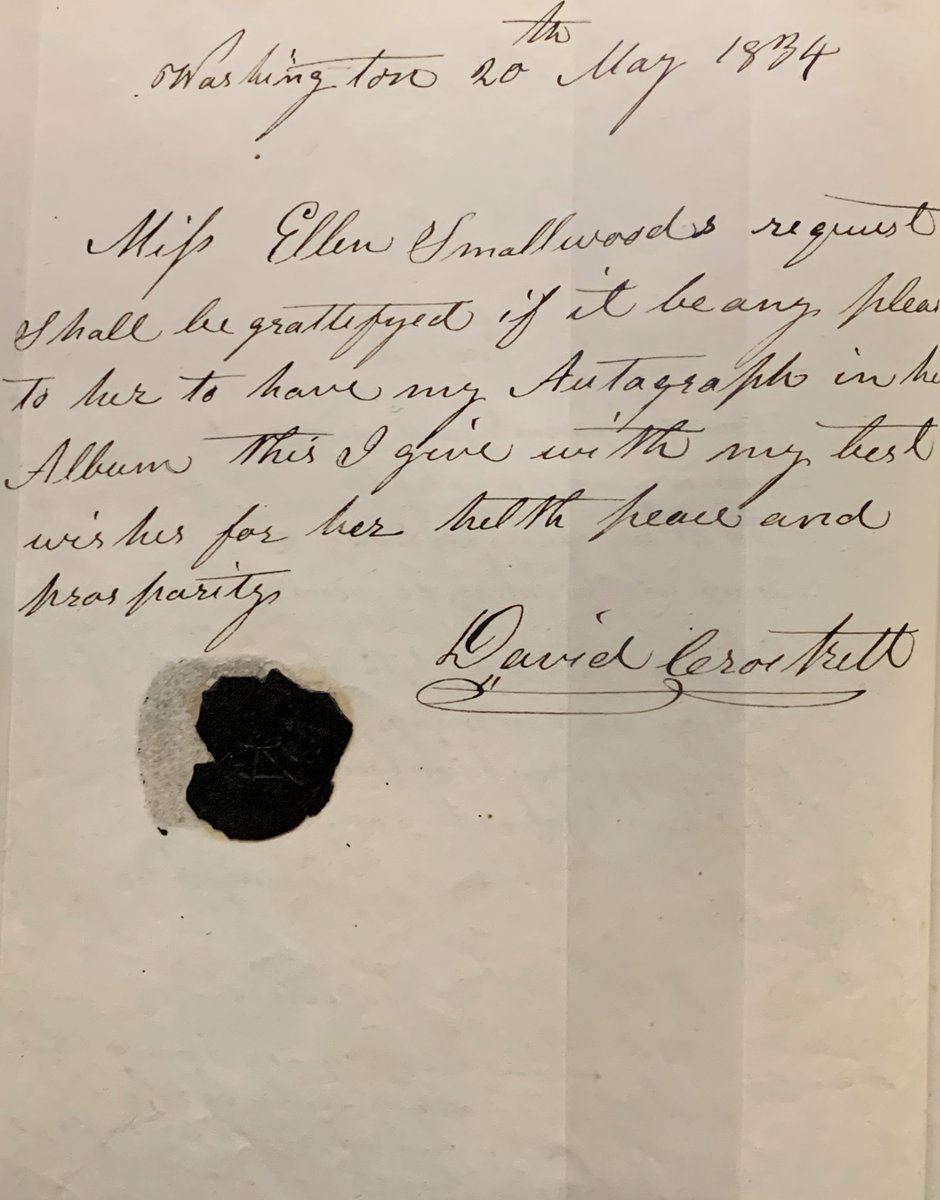 Washington 20th May 1834
Miss Ellen Smallwoods request
shall be grattefyed if it be any pleas
to her to have my Autagraph in he
Album this I give with my best
wishes for her helth peace and
prosparity
David Crockett